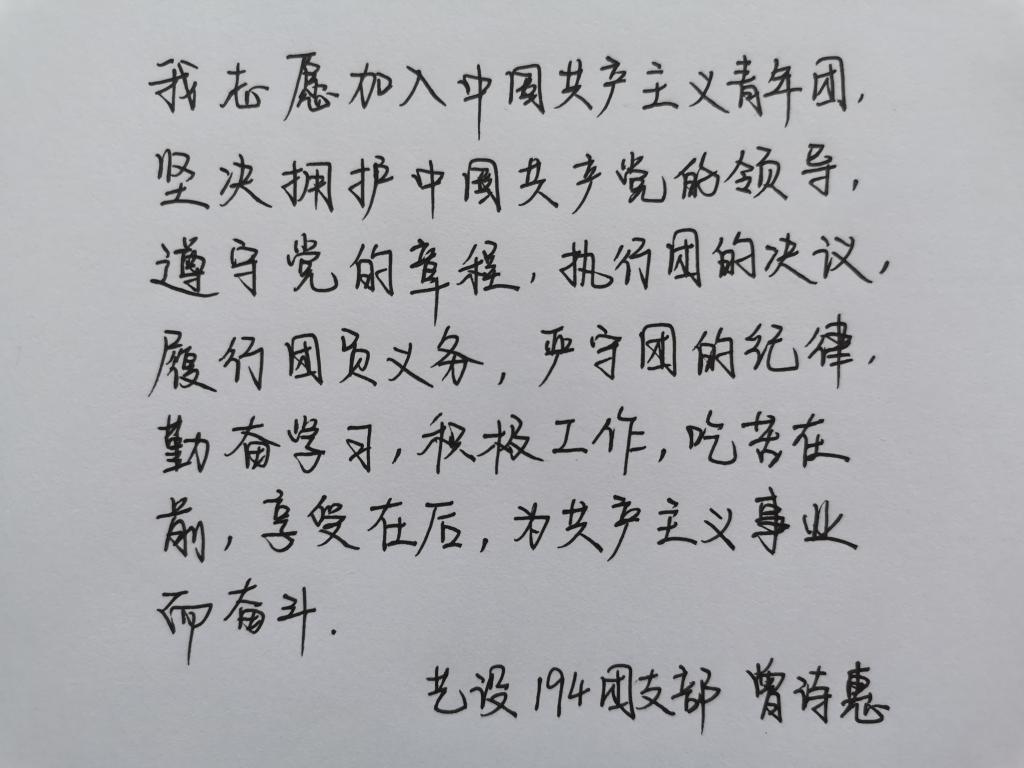 我志愿加入中国共产主义青年团,
坚决拥护中国共产党的领导,
遵守党的章程,执行团的决议,
履行团员义务,严守团的纪律,
勤奋学习,积极工作,吃苦在
前,享受在后,为共产主义事业
而奋斗.
艺设194团支部 曾诗惠